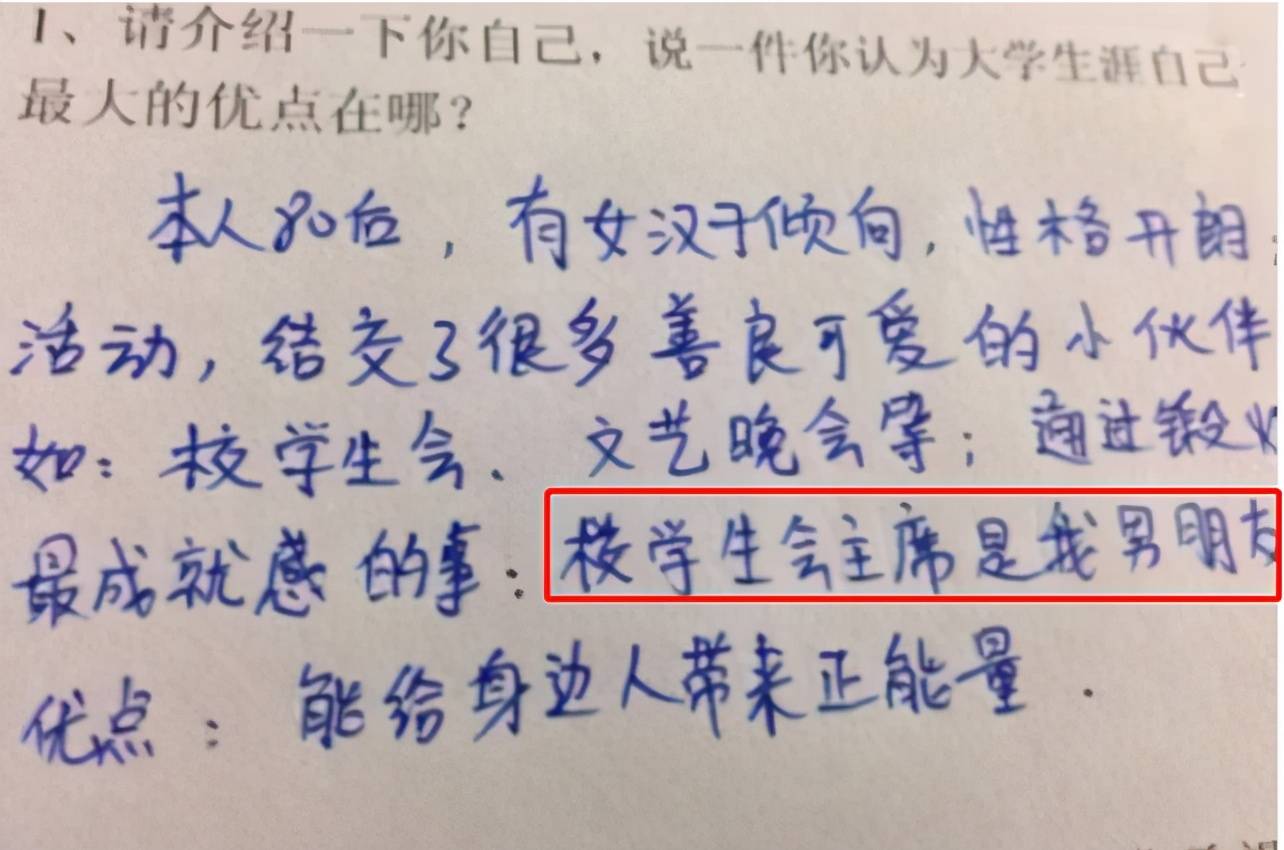 1、请介绍一下你自己，说一件你认为大学生涯自己
最大的优点在哪？
本人80后，有女汉子倾向，性格开朗
活动，结交了很多善良可爱的小伙伴
如：校学生会、文艺晚会等；通过锻
最成就感的事：校学生会主席是我男朋友
优点：能给身边人带来正能量.